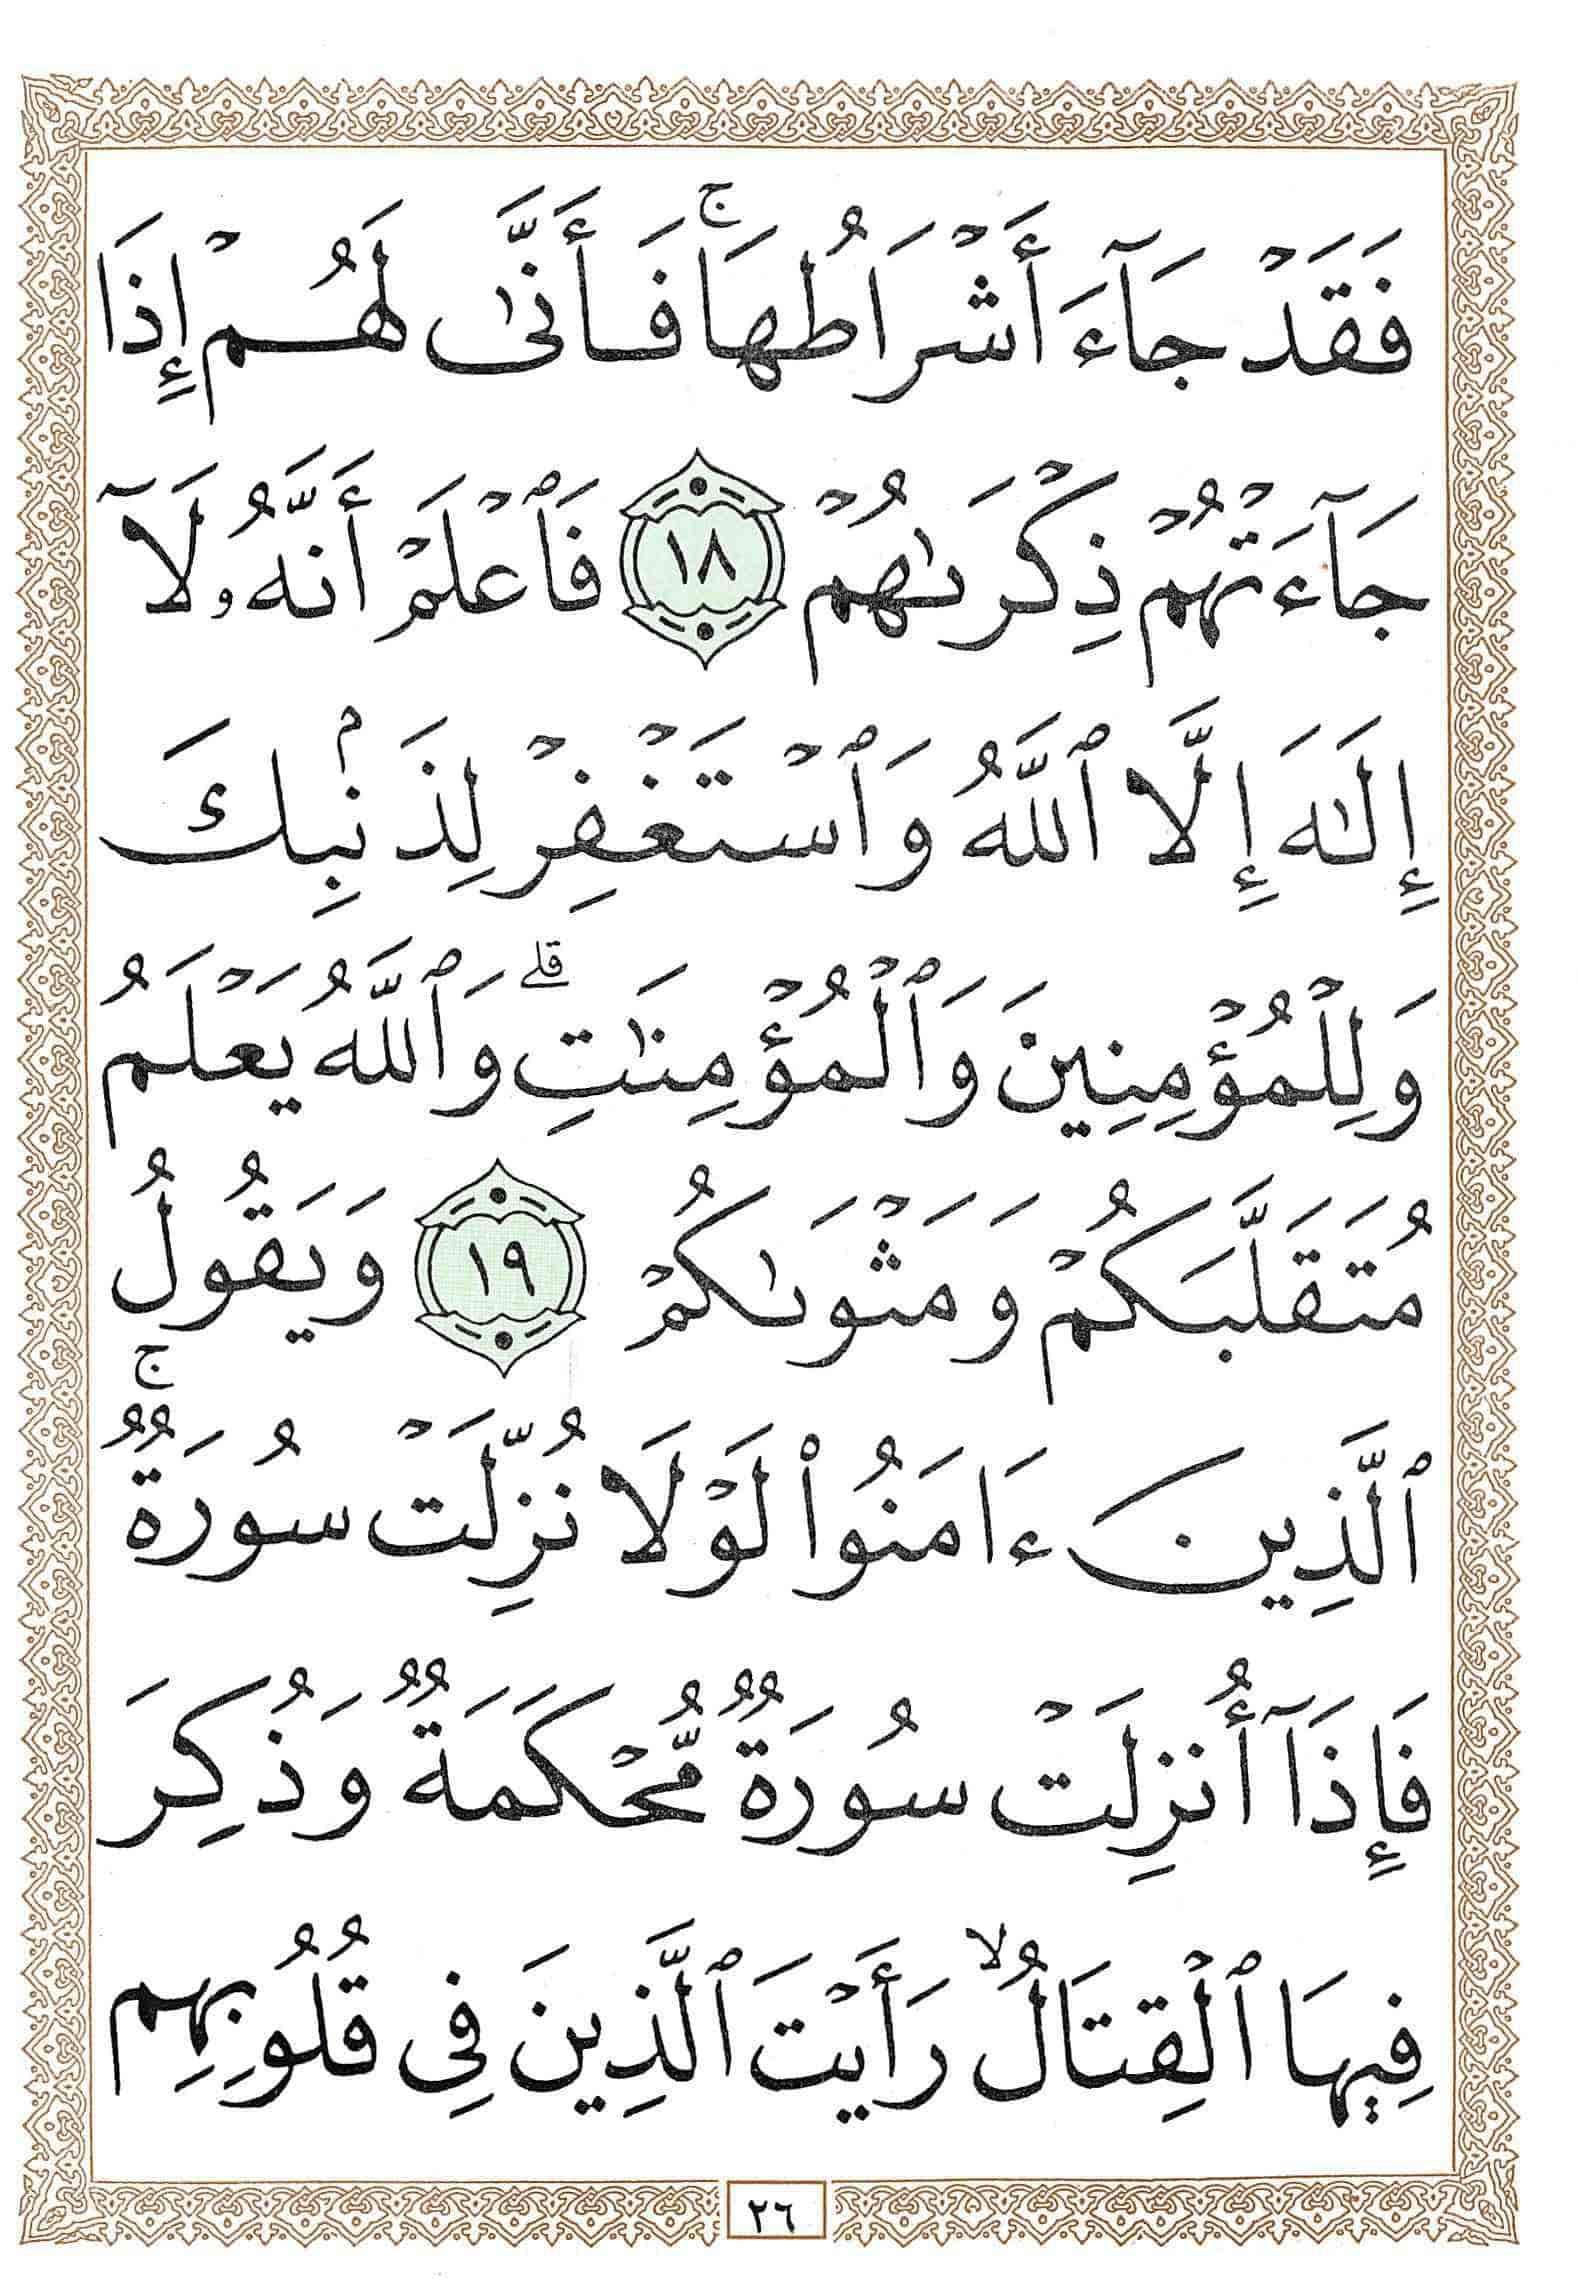 فَقَدْ جَآءَ أَشْرَاطُهَا ۚ فَأَنَّىٰ لَهُمْ إِذَا
جَآءَتْهُمْ ذِكْرَىٰهُمْ ١٨ فَٱعْلَمْ أَنَّهُۥ لَآ
إِلَـٰهَ إِلَّا ٱللَّهُ وَٱسْتَغْفِرْ لِذَنۢبِكَ
وَلِلْمُؤْمِنِينَ وَٱلْمُؤْمِنَـٰتِ ۗ وَٱللَّهُ يَعْلَمُ
مُتَقَلَّبَكُمْ وَمَثْوَىٰكُمْ ١٩ وَيَقُولُ
ٱلَّذِينَ ءَامَنُوا۟ لَوْلَا نُزِّلَتْ سُورَةٌ ۚ
فَإِذَآ أُنزِلَتْ سُورَةٌ مُّحْكَمَةٌ وَذُكِرَ
فِيهَا ٱلْقِتَالُ ۙ رَأَيْتَ ٱلَّذِينَ فِى قُلُوبِهِم
٢٦